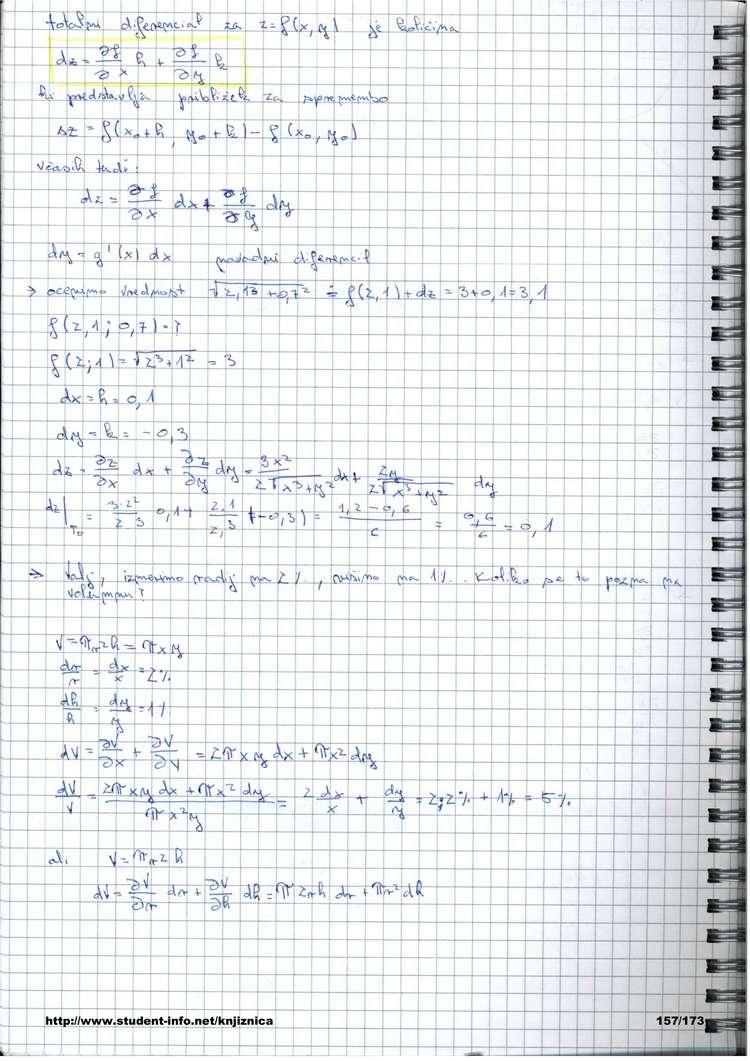 totalni diferencial za z=f(x,y) je količina
dz = ∂f/∂x h + ∂f/∂y k
ki predstavlja približek za spremembo
Δz = f(x₀+h, y₀+k) − f(x₀, y₀)
včasih tudi:
dz = ∂f/∂x dx + ∂f/∂y dy
dy = g'(x) dx navadni diferencial
→ ocenimo vrednost √(2,1³+0,7²) ≐ f(2,1)+dz = 3+0,1=3,1
f(2,1; 0,7) = ?
f(2;1) = √(2³+1²) = 3
dx = h = 0,1
dy = k = −0,3
dz = ∂z/∂x dx + ∂z/∂y dy = 3x²/(2√(x³+y²)) dx + 2y/(2√(x³+y²)) dy
dz|T₀ = 3·2²/2·3 0,1 + 2·1/2·3 (−0,3) = (1,2−0,6)/6 = 0,6/6 = 0,1
→ valj, izmerimo radij na 2%, višino na 1%. Koliko se to pozna na
volumnu?
V = πr²h = πxy
dr/r = dx/x = 2%
dh/h = dy/y = 1%
dV = ∂V/∂x + ∂V/∂V = 2πxy dx + πx² dy
dV/V = (2πxy dx + πx² dy)/(πx²y) = 2 dx/x + dy/y = 2·2% + 1% = 5%
ali V = πr²h
dV = ∂V/∂r dr + ∂V/∂h dh = π2rh dr + πr² dh
http://www.student-info.net/knjiznica 157/173